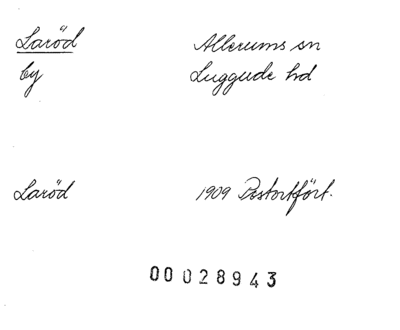 Laröd Allerums sn
by Luggude hd
Laröd 1909 Postortfört.
00028943